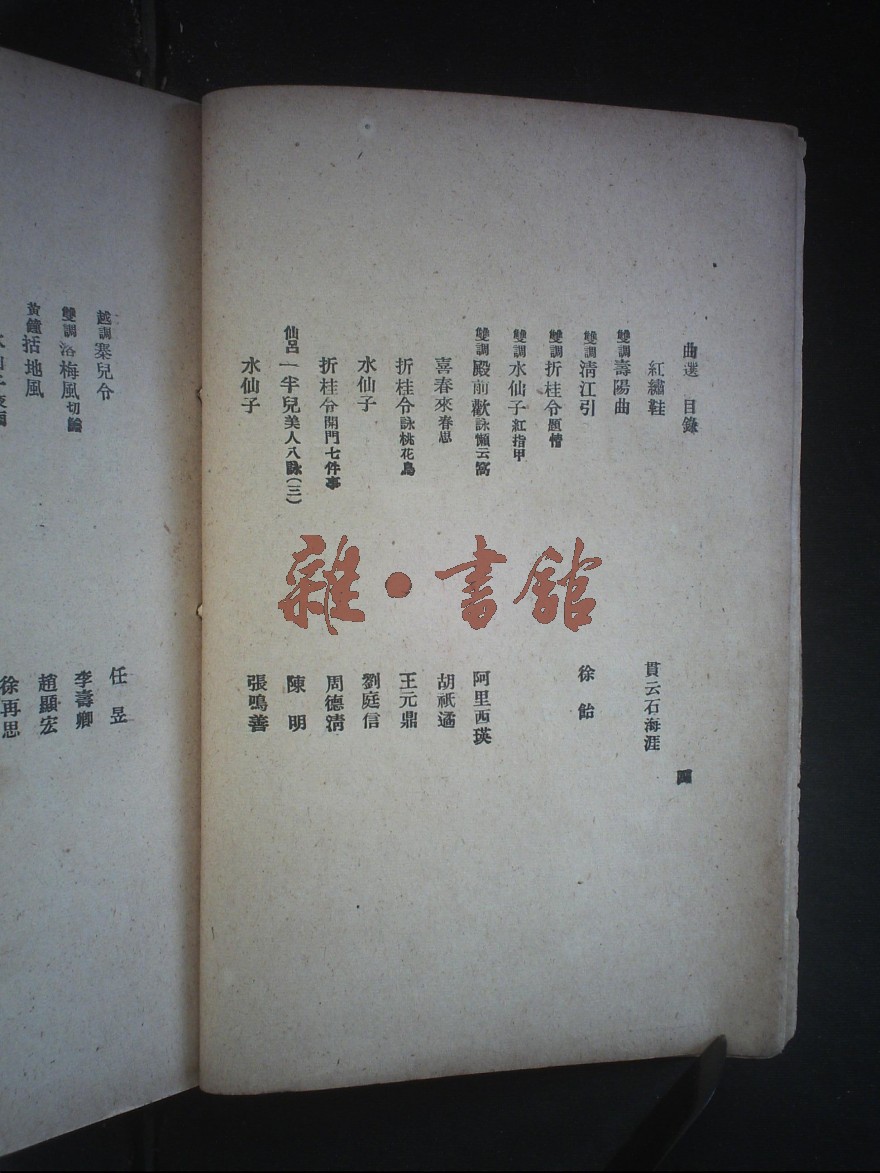 曲選 目錄 四
紅繡鞋 貫云石海涯
雙調壽陽曲
雙調清江引 徐飴
雙調折桂令題情
雙調水仙子紅指甲
雙調殿前歡詠懶云窩 阿里西瑛
喜春來春思 胡祇遹
折桂令詠桃花鳥 王元鼎
水仙子 劉庭信
折桂令開門七件事 周德清
仙呂一半兒美人八詠(三) 陳明
水仙子 張鳴善
越調寨兒令 任昱
雙調落梅風切鱠 李壽卿
黃鐘括地風 趙顯宏
水仙子夜雨 徐再思
雜·書舘